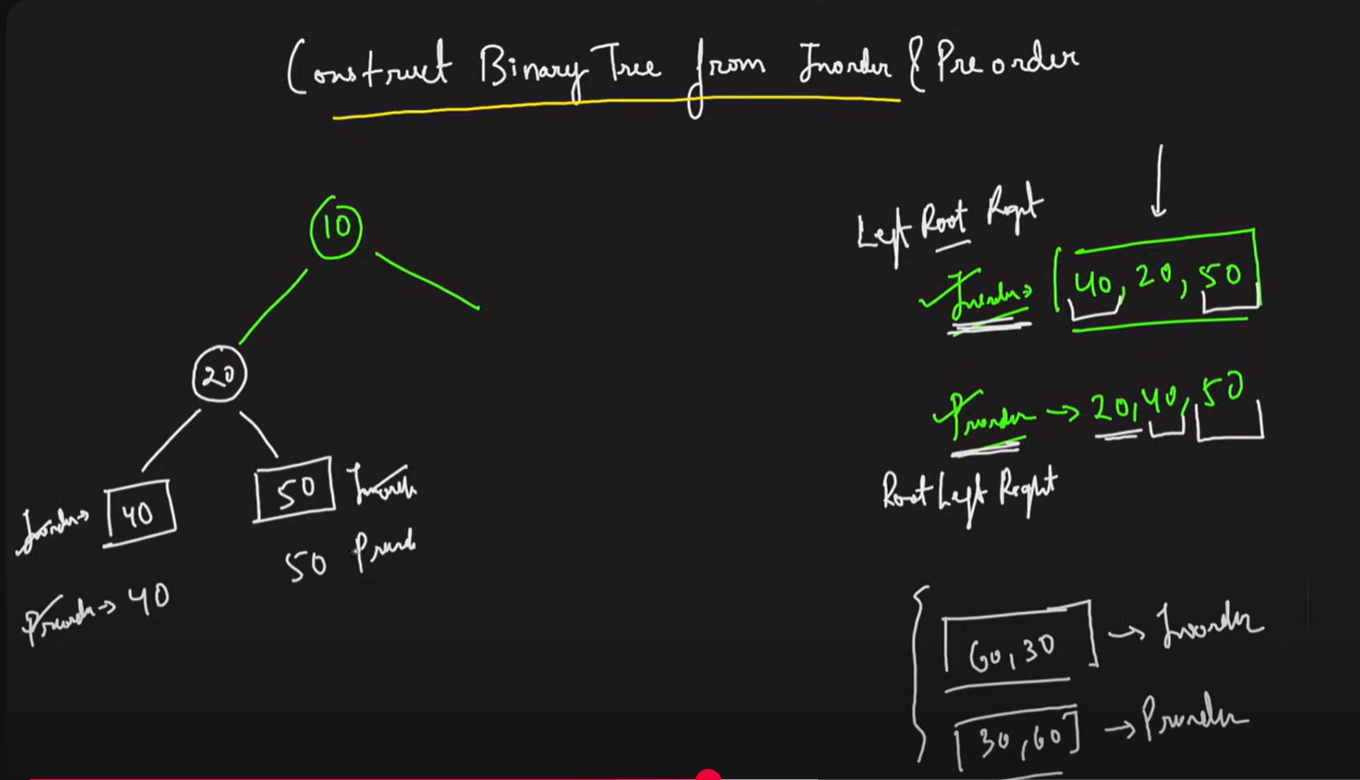 Construct Binary Tree from Inorder & Preorder
10
20
40
50
Inorder→
Inorder
Preorder→ 40
50 Preord
Left Root Right
Inorder→ [40, 20, 50]
Preorder → 20, 40, 50
Root Left Right
[60, 30] → Inorder
[30, 60] → Preorder